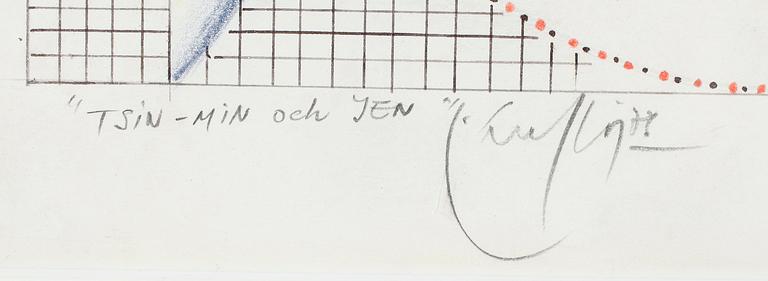 "TSiN-MiN och YEN"